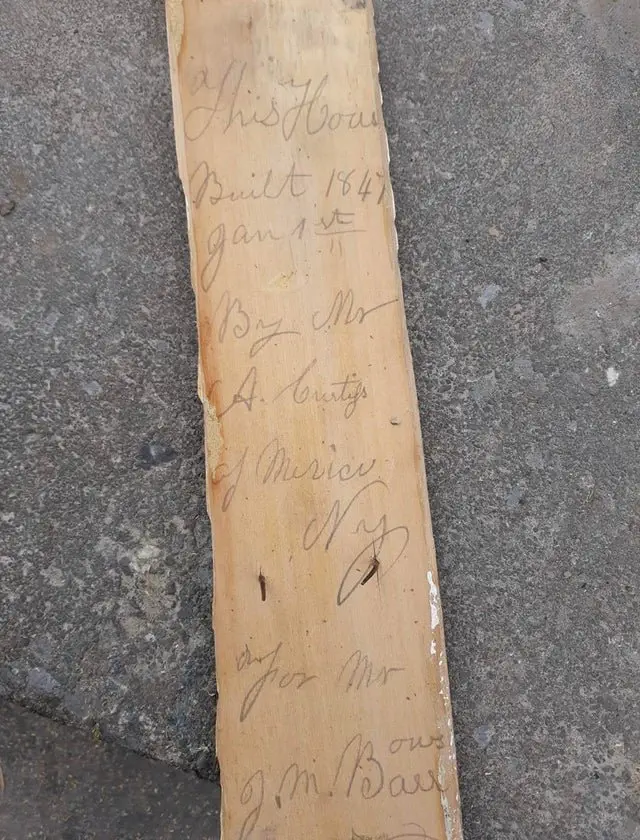 This Hous
Built 1847
Jan 1st
By Mr
A. Curtys
of Mexico
NY
for Mr
J. M. Barrows